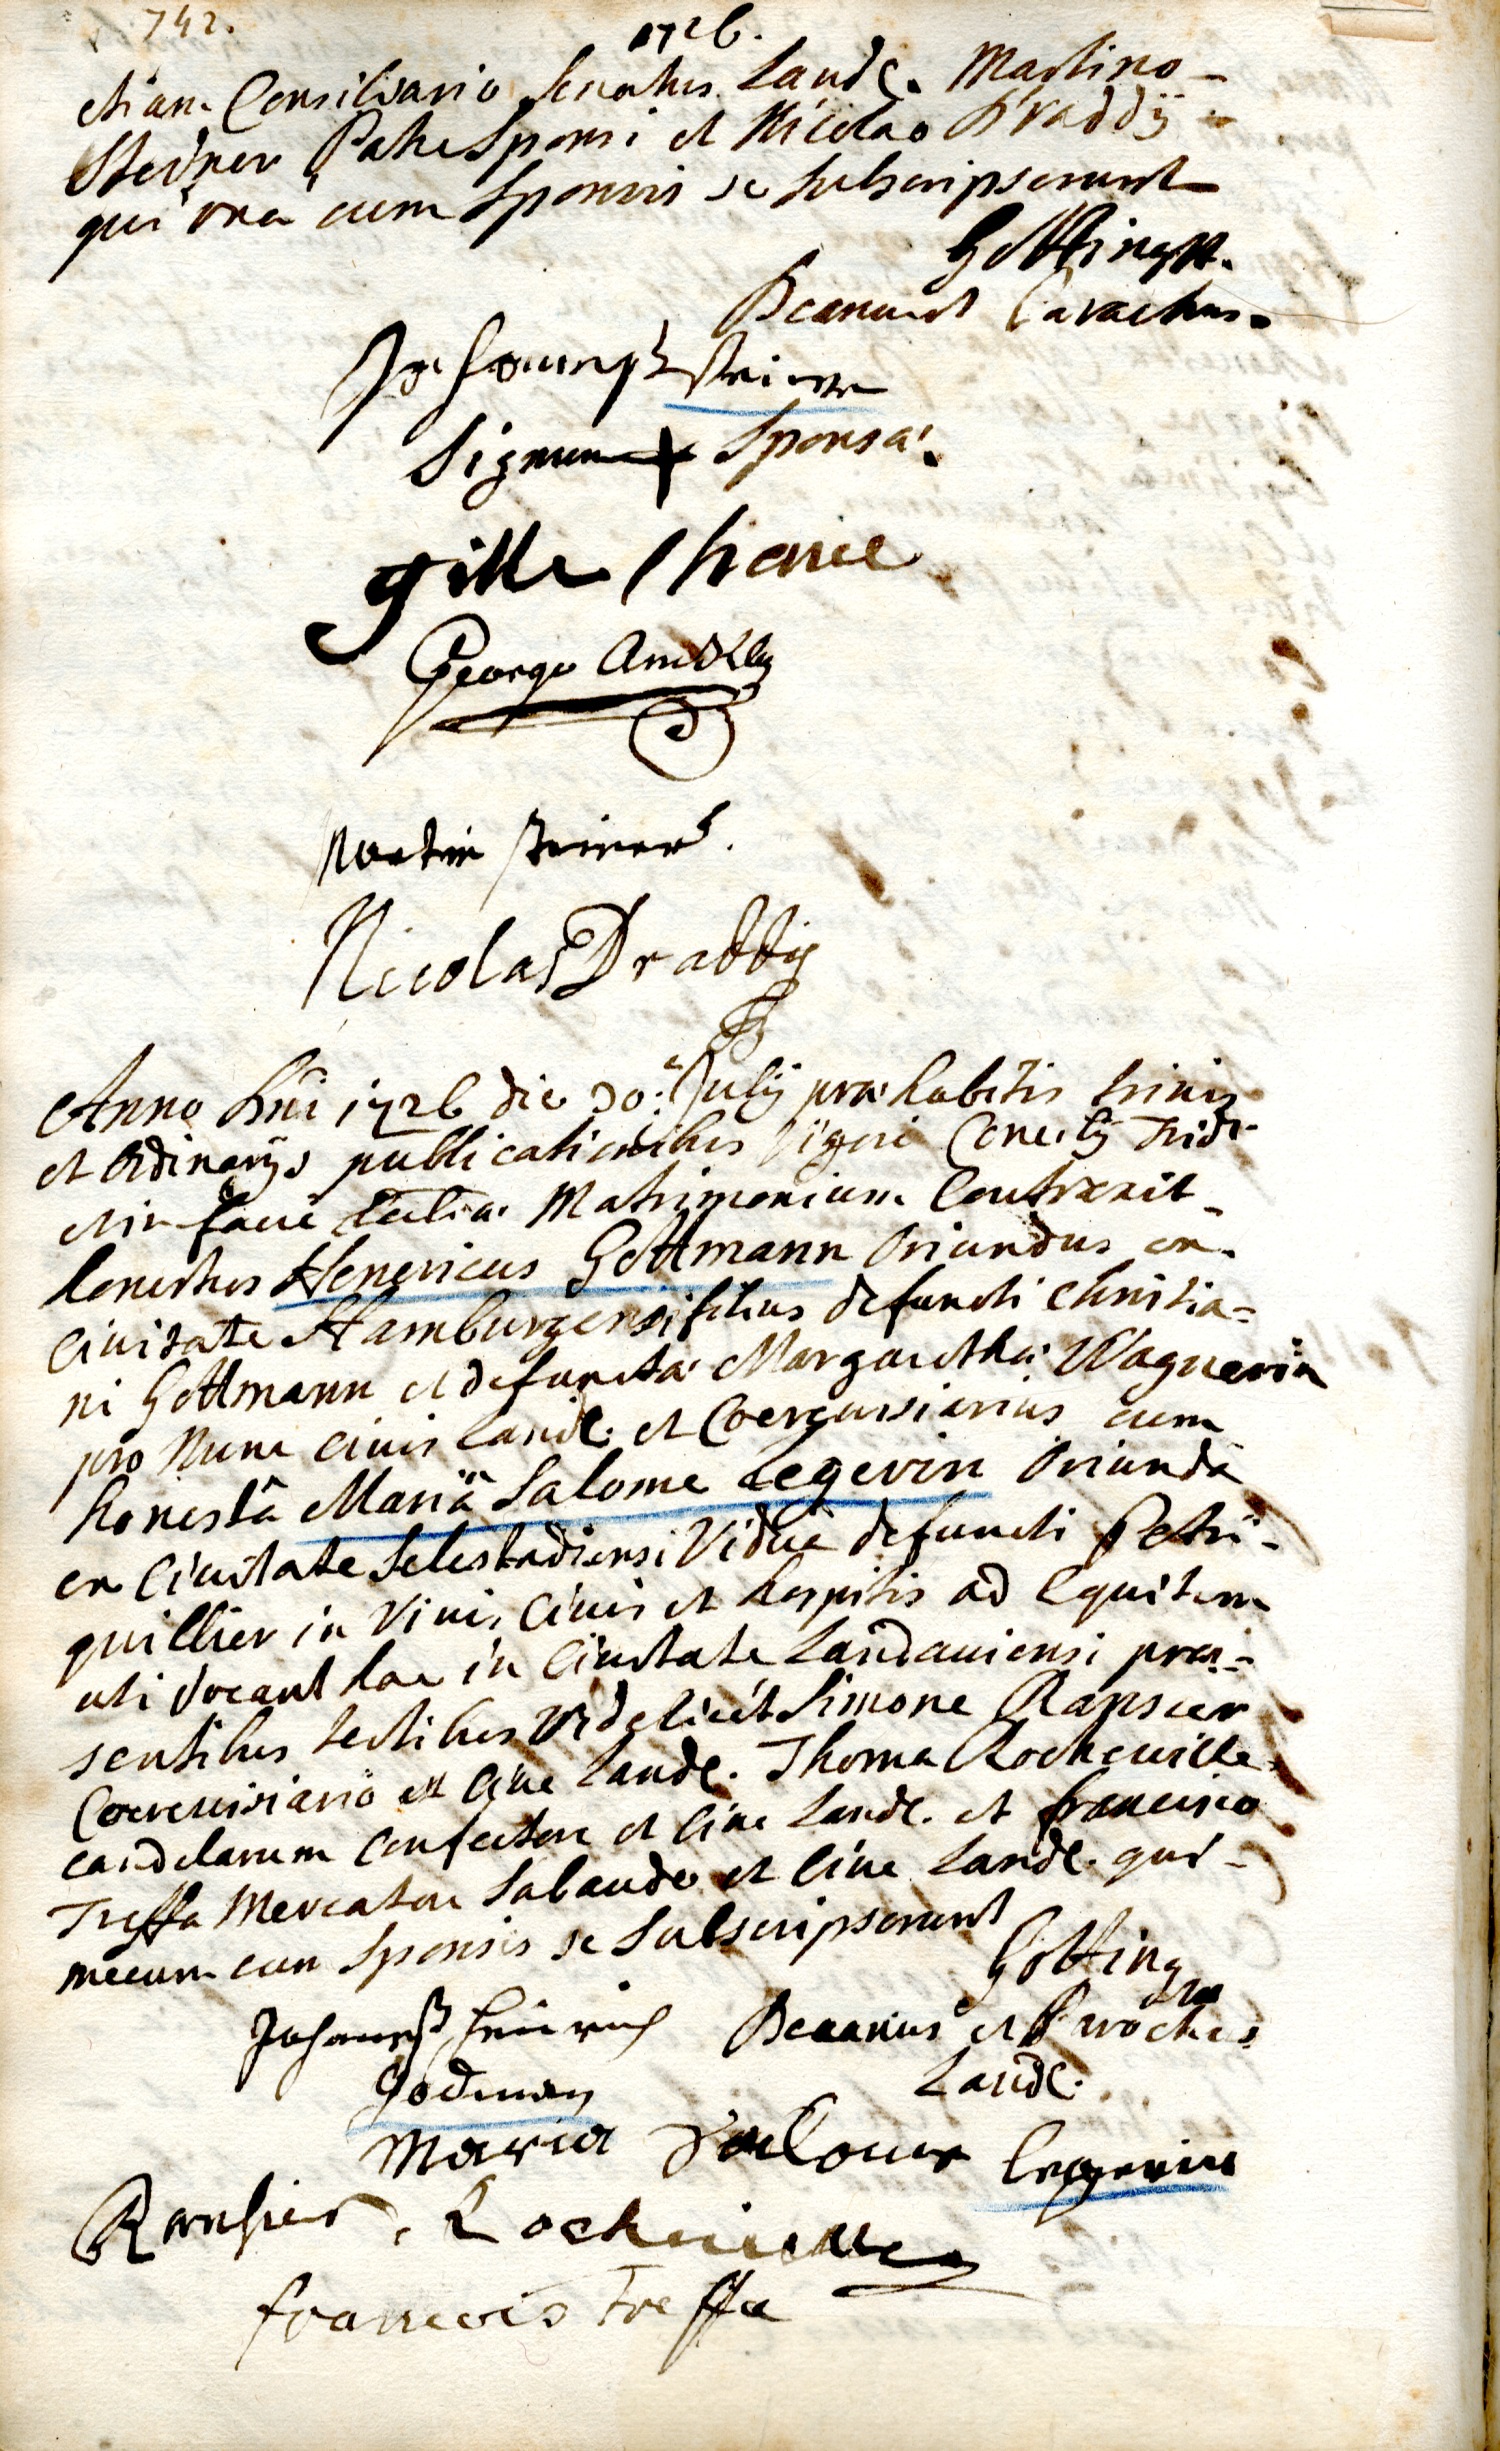 742.
1726.
etiam Consiliario Senatus Landt. Martino
Steiner Patre Sponsi et Nicolao Draddÿ
qui una cum Sponsis se subscripserunt
Götting
Decanus et Parochus.
Johannes Steiner
Signum + Sponsæ.
gille
George
Martin Steiner.
Nicolas Draddij
Anno Dni 1726 die 30.ᵃ Julij præhabitis trinis
et Ordinarijs publicationibus Vigore Concilij Trid.
et in facie Eccliæ Matrimonium Contraxit
honestus Henericus Gottmann Oriundus ex
Civitate Hamburgensi filius defuncti Christia=
ni Gottmann et defunctæ Margarethæ Wagnerin
pro Nunc Civis Landt. et Cerevisiarius cum
honestâ Mariâ Salome Legerin Oriundâ
ex Civitate Selestadiensi Viduâ defuncti Petri
quillier in Vivis Civis et hospitis ad Equitem
uti Vocant hac in Civitate Landaviensi præ=
sentibus testibus Videlicet Simone Ranssier
Cerevisiario et Cive Landt. Thoma Rocheville
candelarum Confectore et Cive Landt. et francisco
Treffa Mercatore Sabaudo et Cive Landt. qui
mecum cum Sponsis se Subscripserunt
Götting
Decanus et Parochus
Landt.
Johannes Heinrich
Godman
Maria Salome Legerin
Ransier, Rocheville
francois treffa